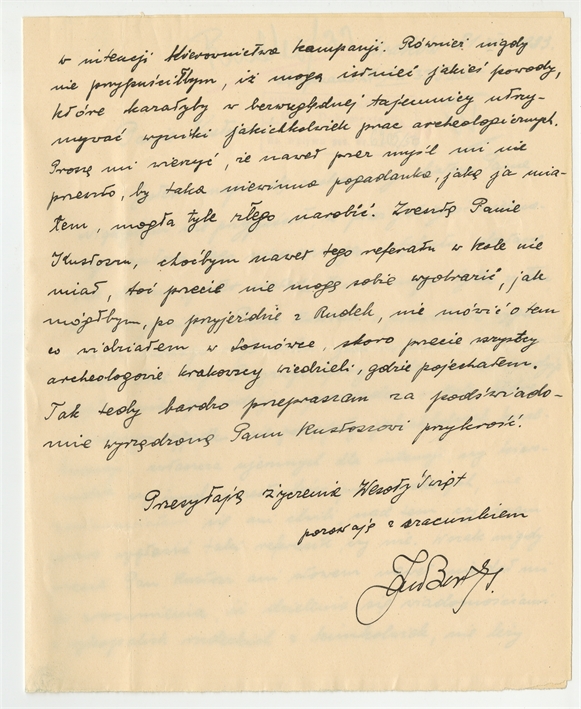 w intencji Kierownictwa kampanji. Również nigdy
nie przypuściłbym, iż mogą istnieć jakieś powody,
które kazałyby w bezwzględnej tajemnicy utrzy-
mywać wyniki jakichkolwiek prac archeologicznych.
Proszę mi wierzyć, że nawet przez myśl mi nie
przeszło, by taka niewinna pogadanka, jaką ja mia-
łem, mogła tyle złego narobić. Zresztą Panie
Kustoszu, choćbym nawet tego referatu w Kole nie
miał, toć przecie nie mogę sobie wyobrazić, jak
mógłbym, po przyjeździe z Rudek, nie mówić o tem
co widziałem w Łosnówce, skoro przecie wszyscy
archeologowie krakowscy wiedzieli, gdzie pojechałem.
Tak tedy bardzo przepraszam za podświado-
mie wyrządzoną Panu Kustoszowi przykrość.
Przesyłają życzenia Wesołych Świąt
pozostaję z szacunkiem